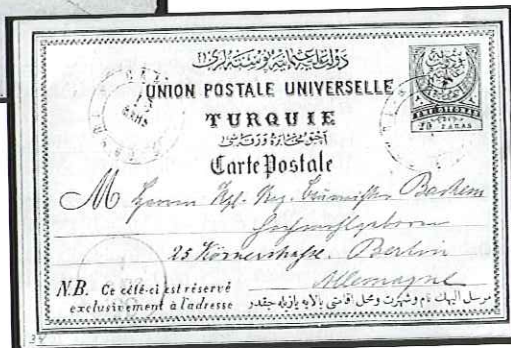 دولت علیه عثمانیه پوسته لری
UNION POSTALE UNIVERSELLE
TURQUIE
آچیق مخابره ورقه سی
Carte Postale
20 PARAS
M Herrn Kgl. Reg. Baumeister
Hochwohlgeboren
25 Körnerstraße. Berlin
Allemagne
N.B. Ce côté-ci est réservé
exclusivement à l'adresse
مرسل اليهك نام وشهرت ومحل اقامتی بالایه یازیله جقدر